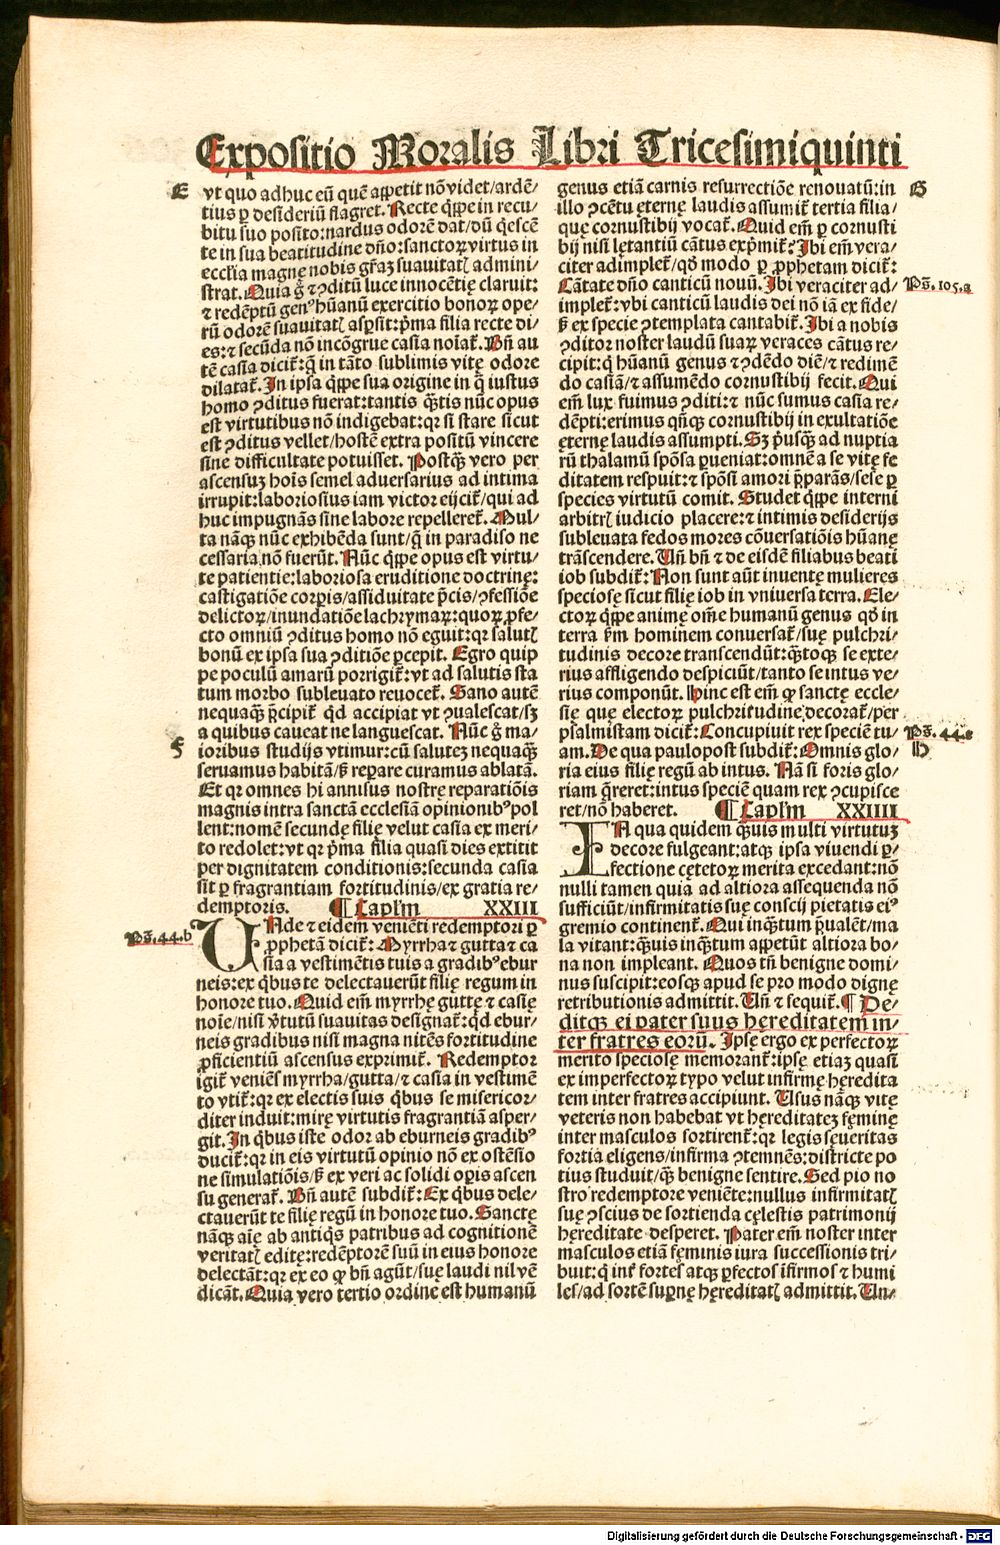 Expositio Moralis Libri Tricesimiquinti
E
vt quo adhuc eũ quẽ appetit nõ videt/ardẽ/
tius ꝑ desideriũ flagret. Recte q̃ppe in recu/
bitu suo posito:nardus odorẽ dat/dũ q̃escẽ
te in sua beatitudine dño:sanctoꝝ virtus in
ecclia magnę nobis gr̃az suauitatꝭ admini/
strat. Quia g̃ ⁊ ꝯditũ luce innocẽtię claruit:
⁊ redẽptũ genꝰ hũanũ exercitio bonoꝝ ope/
rũ odorẽ suauitatꝭ aspsit:pma filia recte di/
es:⁊ secũda nõ incõgrue casia noĩat. Bñ au
tẽ casia dicit̃:q̃ in tãto sublimis vitę odore
dilatat̃. In ipsa q̃ppe sua origine in q̃ iustus
homo ꝯditus fuerat:tantis q̃tis nũc opus
est virtutibus nõ indigebat:qꝛ si stare sicut
est ꝯditus vellet/hostẽ extra positũ vincere
sine difficultate potuisset. Postq̃ vero per
ascensuz hoĩs semel aduersarius ad intima
irrupit:laboriosius iam victor eijcit̃/qui ad
huc impugnãs sine labore repelleret̃. Mul/
ta nãqꝫ nũc exhibẽda sunt/q̃ in paradiso ne
cessaria nõ fuerũt. Nũc q̃ppe opus est virtu/
te patientie:laboriosa eruditione doctrinę:
castigatiõe corpis/assiduitate pcis/ꝯfessiõe
delictoꝝ/inundatiõe lachrymaꝝ:quoꝝ ꝓfe/
cto omniũ ꝯditus homo nõ eguit:qꝛ salutꝭ
bonũ ex ipsa sua ꝯditiõe ꝑcepit. Egro quip
pe poculũ amarũ porrigit̃:vt ad salutis sta
tum morbo subleuato reuocet̃. Sano autẽ
nequaq̃ p̃cipit̃ qd accipiat vt ꝯualescat/sꝫ
a quibus caueat ne languescat. Nũc g̃ ma/
F
ioribus studijs vtimur:cũ salutez nequaq̃
seruamus habitã/ß repare curamus ablatã.
Et qꝛ omnes hi annisus nostrę reparatiõis
magnis intra sanctã ecclesiã opinionibꝰ pol
lent:nomẽ secundę filię velut casia ex meri/
to redolet:vt qꝛ pma filia quasi dies extitit
per dignitatem conditionis:secunda casia
sit ꝑ fragrantiam fortitudinis/ex gratia re/
demptoris. ¶ Caplm XXIII
Ps. 44.b
VNde ⁊ eidem veniẽti redemptori ꝑ
ꝓphetã dicit̃: Myrrha ⁊ gutta ⁊ ca
sia a vestimẽtis tuis a gradibꝰ ebur
neis:ex qbus te delectauerũt filię regum in
honore tuo. Quid em̃ myrrhę guttę ⁊ casię
noĩe/nisi v̾tutũ suauitas designat̃:qd ebur/
neis gradibus nisi magna nitẽs fortitudine
ꝓficientiũ ascensus exprimit̃. Redemptor
igit̃ veniẽs myrrha/gutta/⁊ casia in vestimẽ
to vtit̃:qꝛ ex electis suis qbus se misericor/
diter induit:mirę virtutis fragrantiã asper/
git. In qbus iste odor ab eburneis gradibꝰ
ducit̃:qꝛ in eis virtutũ opinio nõ ex ostẽsio
ne simulatiõis/ß ex veri ac solidi opis ascen
su generat̃. Bñ autẽ subdit̃: Ex qbus dele/
ctauerũt te filię regũ in honore tuo. Sanctę
nãqꝫ aĩę ab antiqs patribus ad cognitionẽ
veritatꝭ editę:redẽptorẽ suũ in eius honore
delectãt:qꝛ ex eo qꝙ bñ agũt/suę laudi nil vẽ
dicãt. Quia vero tertio ordine est humanũ
genus etiã carnis resurrectiõe renouatũ:in
G
illo ꝯcẽtu ęternę laudis assumit̃ tertia filia/
quę cornustibij vocat̃. Quid em̃ ꝑ cornusti
bij nisi lętantiũ cãtus expmit̃? Ibi em̃ vera/
citer adimplet̃/qd modo ꝑ ꝓphetam dicit̃:
Cãtate dño canticũ nouũ. Ibi veraciter ad/
Ps. 105.a
implet̃:vbi canticũ laudis dei nõ iã ex fide/
ß ex specie ꝯtemplata cantabit̃. Ibi a nobis
ꝯditor noster laudũ suaꝝ veraces cãtus re/
cipit:q̃ hũanũ genus ⁊ ꝯdẽdo diẽ/⁊ redimẽ
do casiã/⁊ assumẽdo cornustibij fecit. Qui
em̃ lux fuimus ꝯditi:⁊ nũc sumus casia re/
dẽpti:erimus qñqꝫ cornustibij in exultatiõe
ęternę laudis assumpti. Sꝫ p̃usq̃ ad nuptia
rũ thalamũ spõsa ꝑueniat:omnẽ a se vitę fe
ditatem respuit:⁊ spõsi amori p̃parãs/sese ꝑ
species virtutũ comit. Studet q̃ppe interni
arbitrꝭ iudicio placere:⁊ intimis desiderijs
subleuata fedos mores cõuersatiõis hũanę
trãscendere. Uñ bñ ⁊ de eisdẽ filiabus beati
iob subdit̃: Non sunt aũt inuentę mulieres
speciosę sicut filię iob in vniuersa terra. Ele/
ctoꝝ q̃ppe animę om̃e humanũ genus qd in
terra ẞm hominem conuersat̃/suę pulchri/
tudinis decore transcendũt:q̃toqꝫ se exte/
rius affligendo despiciũt/tanto se intus ve/
rius componũt. Hinc est em̃ qꝙ sanctę eccle/
się quę electoꝝ pulchritudine decorat̃/per
psalmistam dicit̃: Concupiuit rex speciẽ tu/
Ps. 44.c
am. De qua paulopost subdit̃: Omnis glo/
H
ria eius filię regũ ab intus. Nã si foris glo/
riam q̃reret:intus speciẽ quam rex ꝯcupisce
ret/nõ haberet. ¶ Caplm XXIIII
IN qua quidem q̃uis multi virtutuz
decore fulgeant:atqꝫ ipsa viuendi ꝑ/
fectione cęteroꝝ merita excedant:nõ
nulli tamen quia ad altiora assequenda nõ
sufficiũt/infirmitatis suę conscij pietatis eiꝰ
gremio continent̃. Qui inq̃tum p̃ualẽt/ma
la vitant:q̃uis inq̃tum appetũt altiora bo/
na non impleant. Quos tñ benigne domi/
nus suscipit:eosqꝫ apud se pro modo dignę
retributionis admittit. Uñ ⁊ sequit̃. ¶ De/
ditqꝫ ei pater suus hęreditatem in/
ter fratres eorũ. Ipsę ergo ex perfectoꝝ
merito speciosę memorant̃:ipsę etiaz quasi
ex imperfectoꝝ typo velut infirmę hęredita
tem inter fratres accipiunt. Usus nãqꝫ vitę
veteris non habebat vt hęreditatez fęminę
inter masculos sortirent̃:qꝛ legis seueritas
fortia eligens/infirma ꝯtemnẽs:districte po
tius studuit/q̃ benigne sentire. Sed pio no
stro redemptore veniẽte:nullus infirmitatꝭ
suę ꝯscius de sortienda cęlestis patrimonij
hęreditate desperet. Pater em̃ noster inter
masculos etiã fęminis iura successionis tri/
buit:q̃ int̃ fortes atqꝫ ꝑfectos ĩfirmos ⁊ humi
les/ad sortẽ supnę hęreditatꝭ admittit. Un/
Digitalisierung gefördert durch die Deutsche Forschungsgemeinschaft - DFG